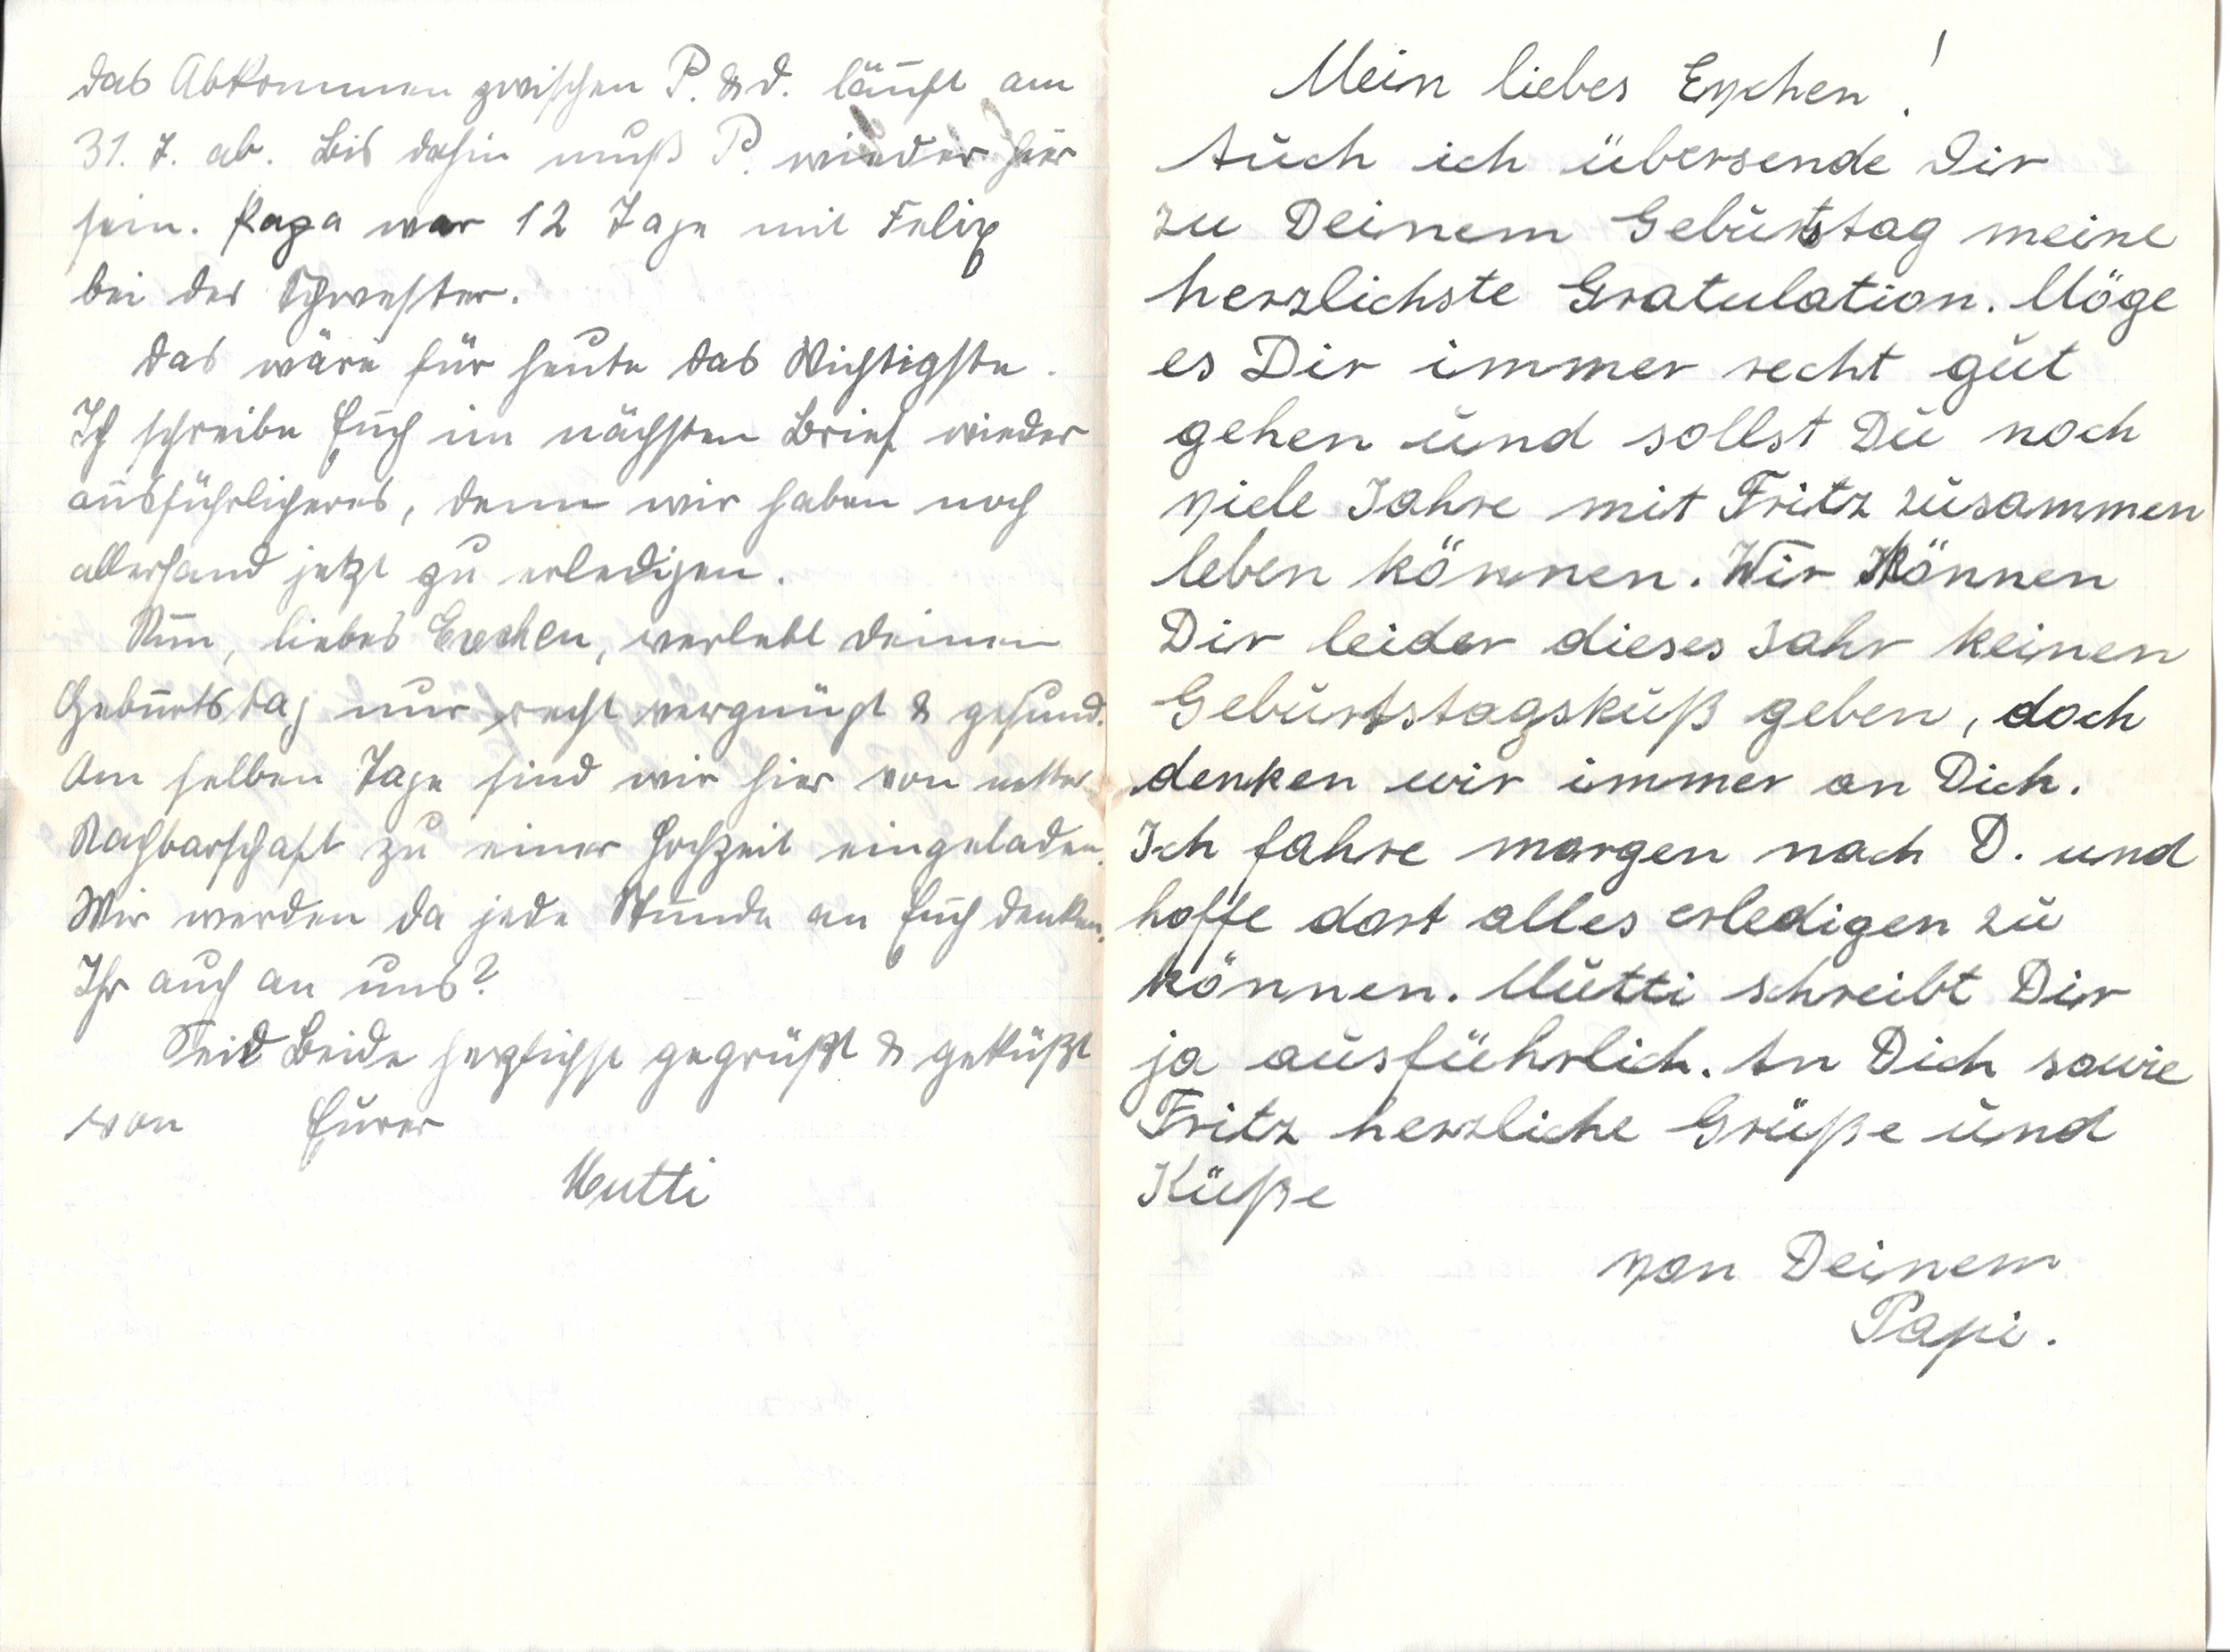 Das Abkommen zwischen P. & D. läuft am
31. 7. ab. Bis dahin muß P. wieder hier
sein. Papa war 12 Tage mit Felix
bei der Schwester.
Das wäre für heute das Wichtigste.
Ich schreibe Euch im nächsten Brief wieder
ausführlicheres, denn wir haben noch
allerhand jetzt zu erledigen.
Nun, liebes Evchen, verlebt Deinen
Geburtstag nur recht vergnügt & gesund.
Am selben Tage sind wir hier von netter
Nachbarschaft zu einer Hochzeit eingeladen.
Wir werden da jede Stunde an Euch denken.
Ihr auch an uns?
Seid Beide herzlichst gegrüßt & geküßt
von Eurer
Mutti
Mein liebes Evchen!
Auch ich übersende Dir
zu Deinem Geburtstag meine
herzlichste Gratulation. Möge
es Dir immer recht gut
gehen und sollst Du noch
viele Jahre mit Fritz zusammen
leben können. Wir können
Dir leider dieses Jahr keinen
Geburtstagskuß geben, doch
denken wir immer an Dich.
Ich fahre morgen nach D. und
hoffe dort alles erledigen zu
können. Mutti schreibt Dir
ja ausführlich. An Dich sowie
Fritz herzliche Grüße und
Küße
von Deinem
Papi.